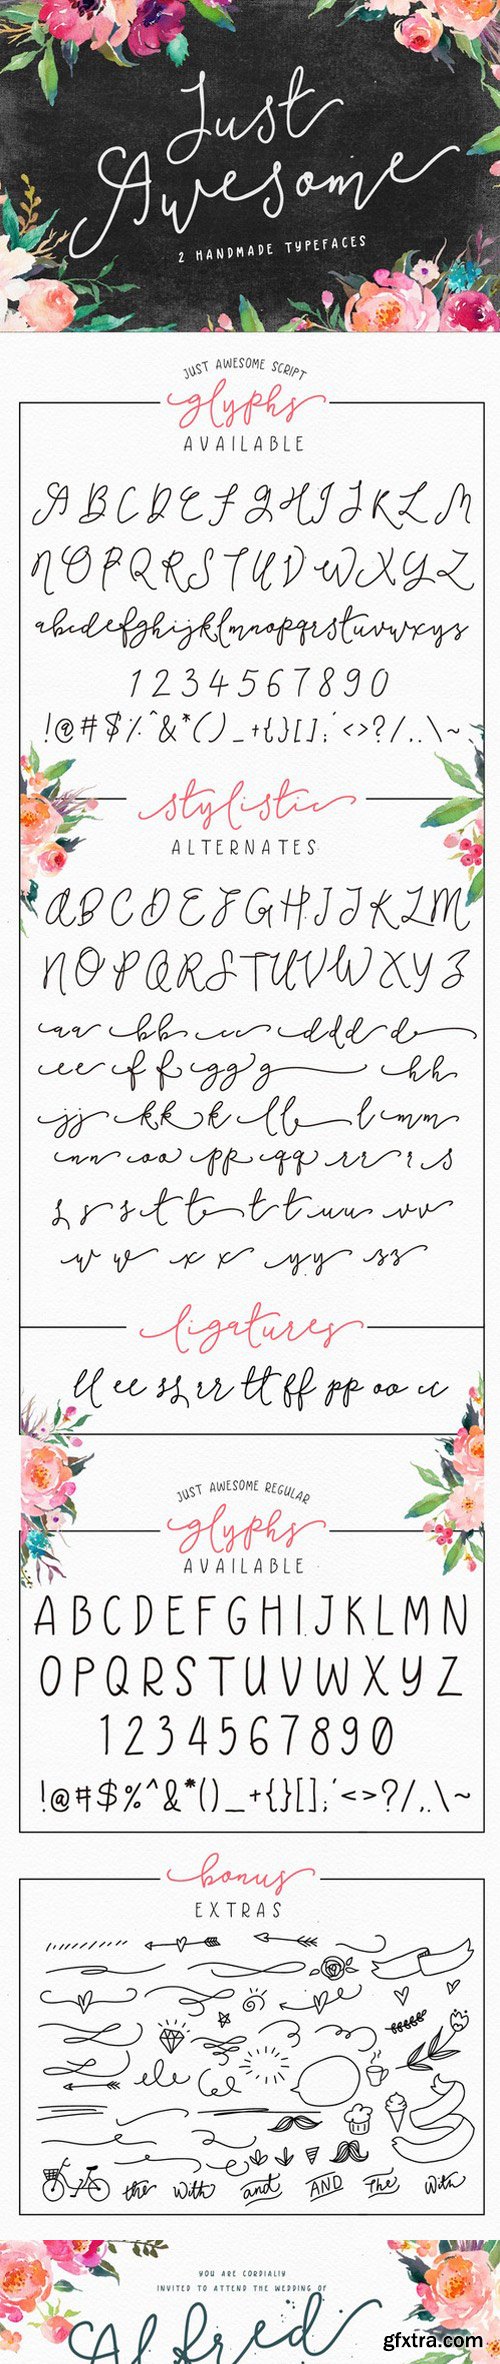 Just
Awesome
2 HANDMADE TYPEFACES
JUST AWESOME SCRIPT
glyphs
AVAILABLE
A B C D E F G H I J K L M
N O P Q R S T U V W X Y Z
abcdefghijklmnopqrstuvwxyz
1234567890
!@#$%^&*()_+{}[];'<>?/,.\~
stylistic
ALTERNATES
A B C D E F G H I J K L M
N O P Q R S T U V W X Y Z
aa bb cc ddd d
ee f f gg g hh
jj kk k ll l mm
nn oo pp qq rr r s
s s s t t t t uu vv
w w x x yy zz
ligatures
ll ee ss rr tt ff pp oo cc
JUST AWESOME REGULAR
glyphs
AVAILABLE
A B C D E F G H I J K L M N
O P Q R S T U V W X Y Z
1234567890
!@#$%^&*()_+{}[];'<>?/,.\~
bonus
EXTRAS
the with and AND The With
YOU ARE CORDIALLY
INVITED TO ATTEND THE WEDDING OF
Alfred
gfxtra.com